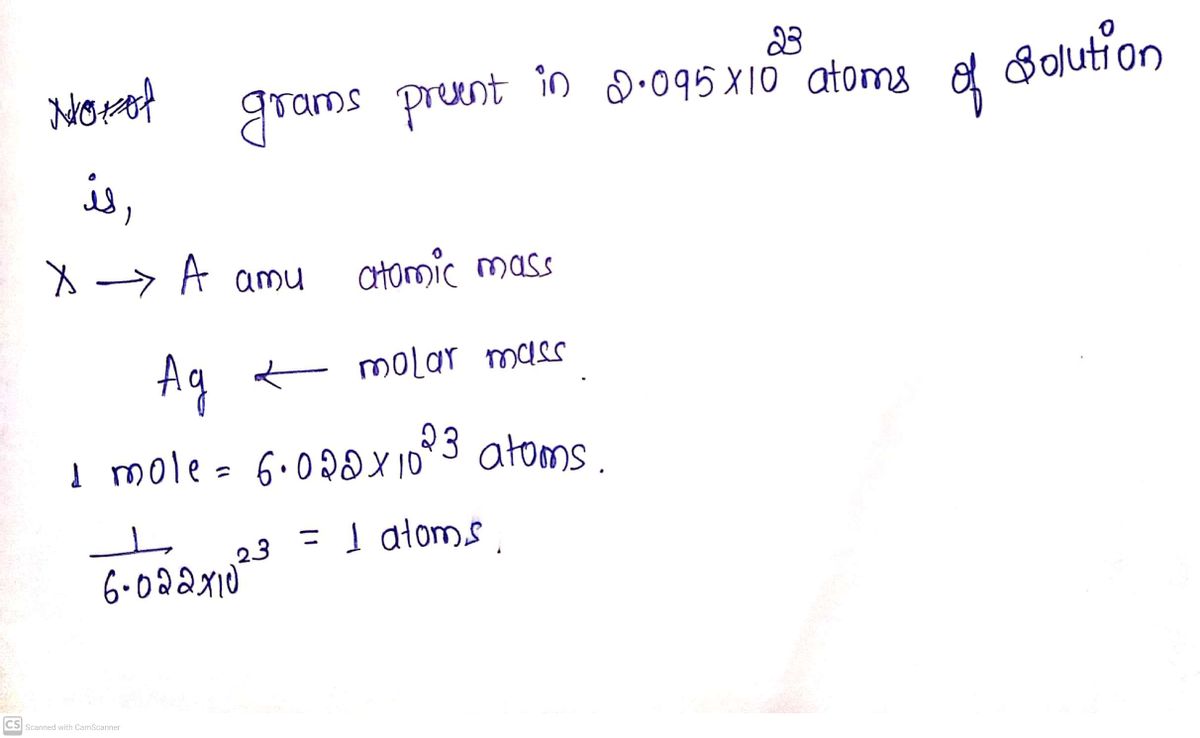 grams present in 2.095 X10²³ atoms of Solution
is,
X → A amu atomic mass
Ag ← molar mass.
1 mole = 6.022 X 10²³ atoms.
1/6.022X10²³ = 1 atoms.
CS Scanned with CamScanner